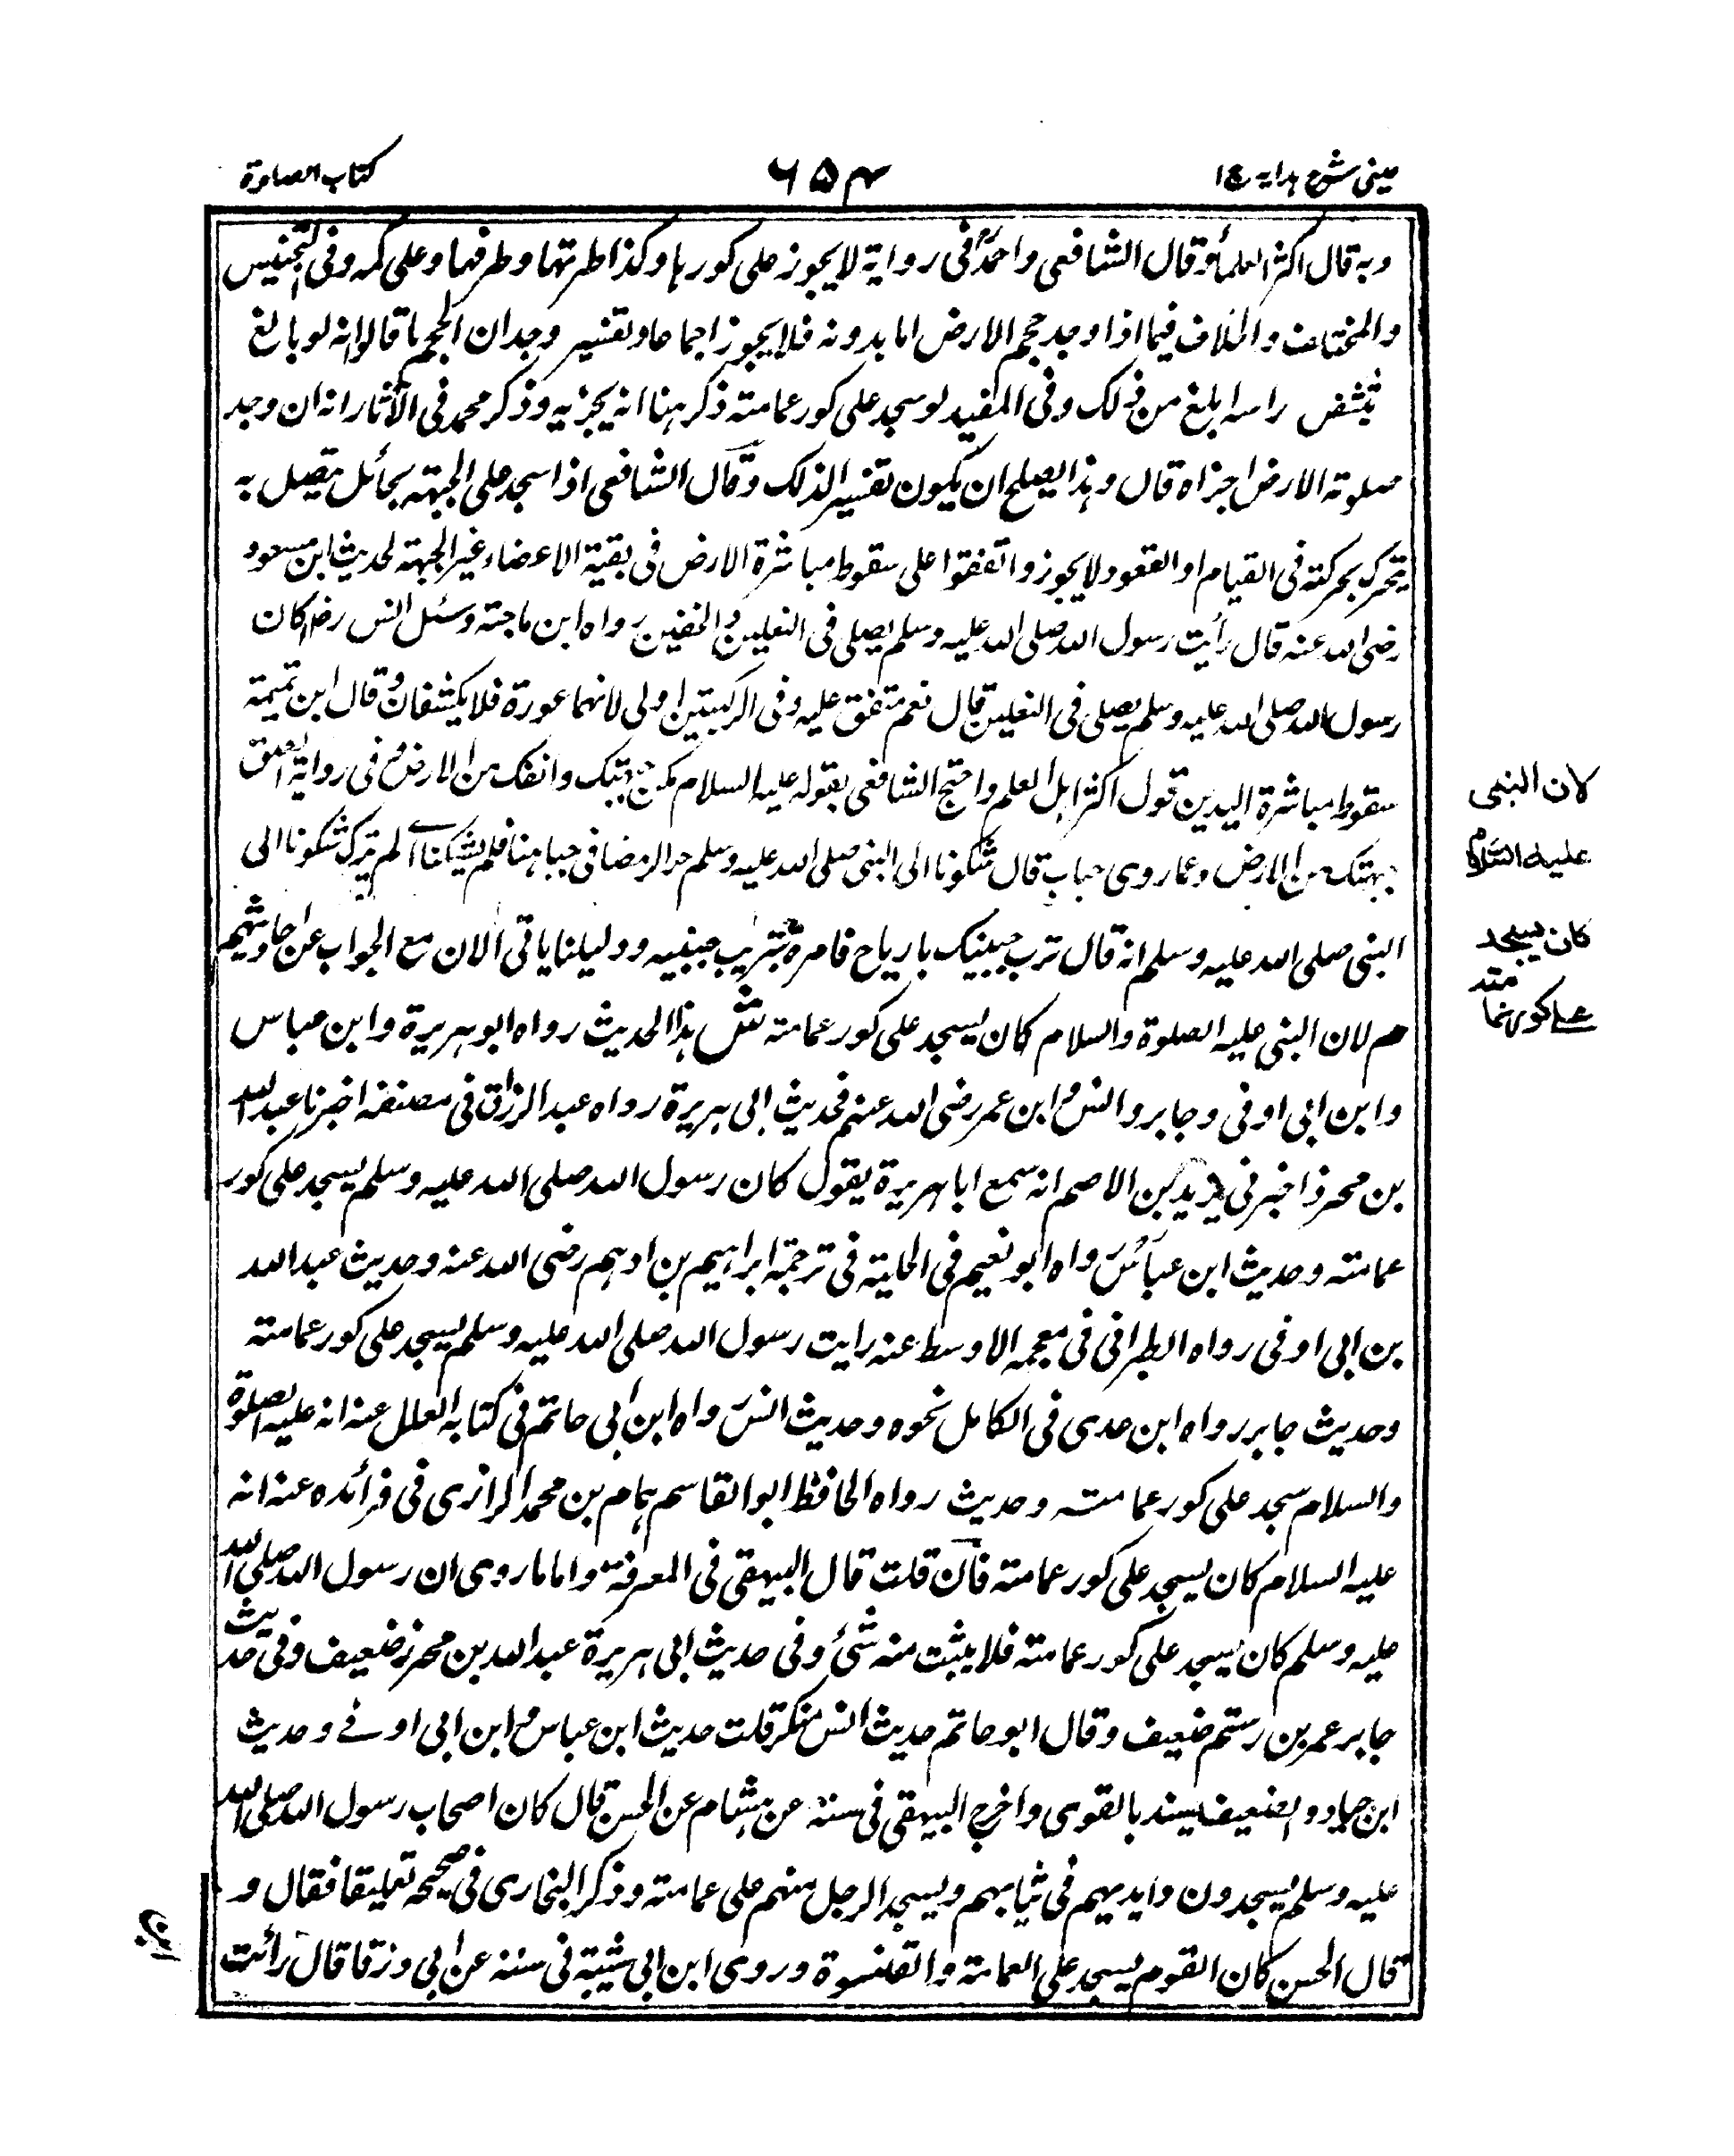 عینی شرح ہدایہ ج ۱
۶۵۴
کتاب الصلوۃ
وبه قال اکثر العلماء وقال الشافعی واحمد فی روایة لا یجوز علی کورہا وکذا طرتہا وطرفہا وعلی کمه وفی التجنیس
والمختلف والخلاف فیما اذا وجد حجم الارض اما بدونه فلا یجوز اجماعا وتفسیر وجدان الحجم ما قالوا انه لو بالغ
راسه ابلغ من ذلک وفی المفید لو سجد علی کور عمامته ذکر ہنا انه یجزیه وذکر محمد فی الآثار انه ان وجد
صلوبة الارض اجزاه قال وہذا یصلح ان یکون تفسیرا لذلک وقال الشافعی اذا سجد علی الجبہة بحائل متصل به
یتحرک بحرکته فی القیام او القعود لا یجوز واتفقوا علی سقوط مباشرة الارض فی بقیة الاعضاء غیر الجبہة لحدیث ابن مسعود
رضی الله عنه قال رأیت رسول الله صلی الله علیه وسلم یصلی فی النعلین والخفین رواه ابن ماجة وسئل انس رض اکان
رسول الله صلی الله علیه وسلم یصلی فی النعلین قال نعم متفق علیه وفی الرکبتین اولی لانہما عورة فلا یکشفان وقال ابن تیمیة
سقوط مباشرة الیدین قول اکثر اہل العلم واحتج الشافعی بقوله علیه السلام مکن جبہتک وانفک من الارض وفی روایة الصق
جبہتک من الارض وعما روی خباب قال شکونا الی النبی صلی الله علیه وسلم حر الرمضا فی جباہنا فلم یشکنا ای لم یترک شکونا الی
النبی صلی الله علیه وسلم انه قال ترب جبینک یا رباح فامره بتتریب جبینه ودلیلنا یاتی الان مع الجواب عن احادیثہم
م لان النبی علیه الصلوة والسلام کان یسجد علی کور عمامته ش ہذا الحدیث رواه ابو ہریرة وابن عباس
وابن ابی اوفی وجابر وانس وابن عمر رضی الله عنہم فحدیث ابی ہریرة رواه عبد الرزاق فی مصنفه اخبرنا عبد الله
بن محرز اخبرنی یزید بن الاصم انه سمع ابا ہریرة یقول کان رسول الله صلی الله علیه وسلم یسجد علی کور
عمامته وحدیث ابن عباس رواه ابو نعیم فی الحلیة فی ترجمة ابراہیم بن ادہم رضی الله عنه وحدیث عبد الله
بن ابی اوفی رواه الطبرانی فی معجمه الاوسط عنه رایت رسول الله صلی الله علیه وسلم یسجد علی کور عمامته
وحدیث جابر رواه ابن عدی فی الکامل نحوه وحدیث انس رواه ابن ابی حاتم فی کتابه العلل عنه انه علیه الصلوة
والسلام سجد علی کور عمامته وحدیث رواه الحافظ ابو القاسم ہمام بن محمد الرازی فی فوائده عنه انه
علیه السلام کان یسجد علی کور عمامته فان قلت قال البیہقی فی المعرفة واما ما روی ان رسول الله صلی الله
علیه وسلم کان یسجد علی کور عمامته فلا یثبت منه شیٔ وفی حدیث ابی ہریرة عبد الله بن محرز ضعیف وفی حدیث
جابر عمر بن رستم ضعیف وقال ابو حاتم حدیث انس منکر قلت حدیث ابن عباس وابن ابی اوفے وحدیث
ابن جیاد والضعیف یسند بالقوی واخرج البیہقی فی سننه عن ہشام عن الحسن قال کان اصحاب رسول الله صلی الله
علیه وسلم یسجدون وایدیہم فی ثیابہم ویسجد الرجل منہم علی عمامته وذکر البخاری فی صحیحه تعلیقا فقال و
قال الحسن کان القوم یسجد علی العمامة والقلنسوة وروی ابن ابی شیبة فی سننه عن ابی ورقا قال رأیت
لان النبی
علیه السلام
کان یسجد
علے کور عمامته